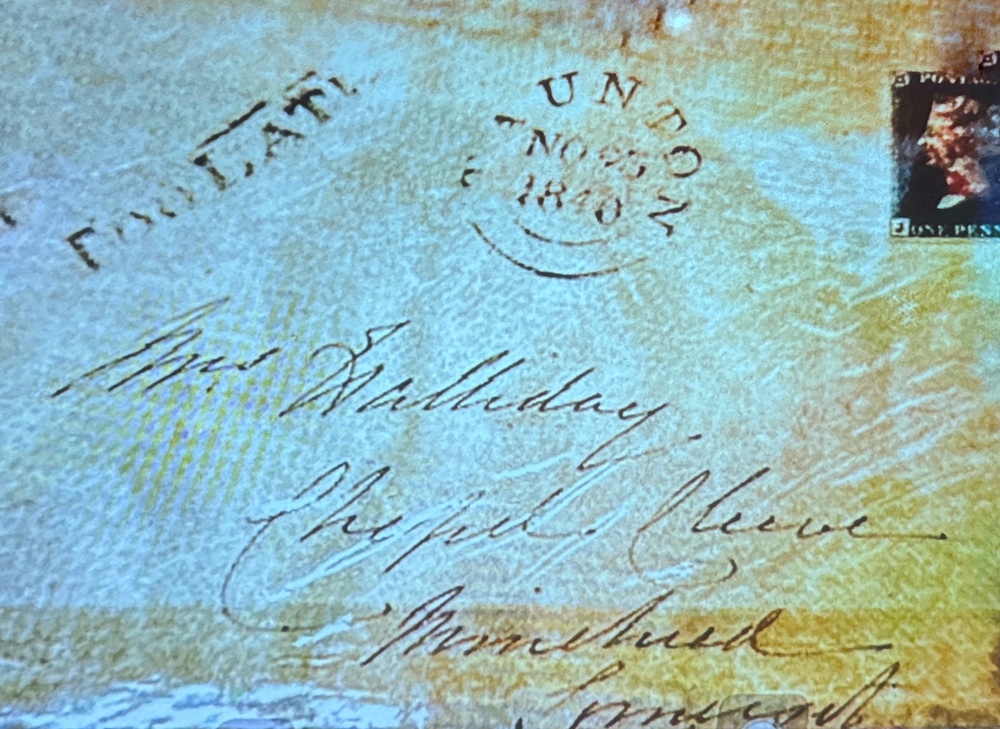 TOO LATE
UNTON
NO 25
1840
POSTAGE
J ONE PENN
Mrs Halliday
Chapel Cleeve
Minehead
Somerset